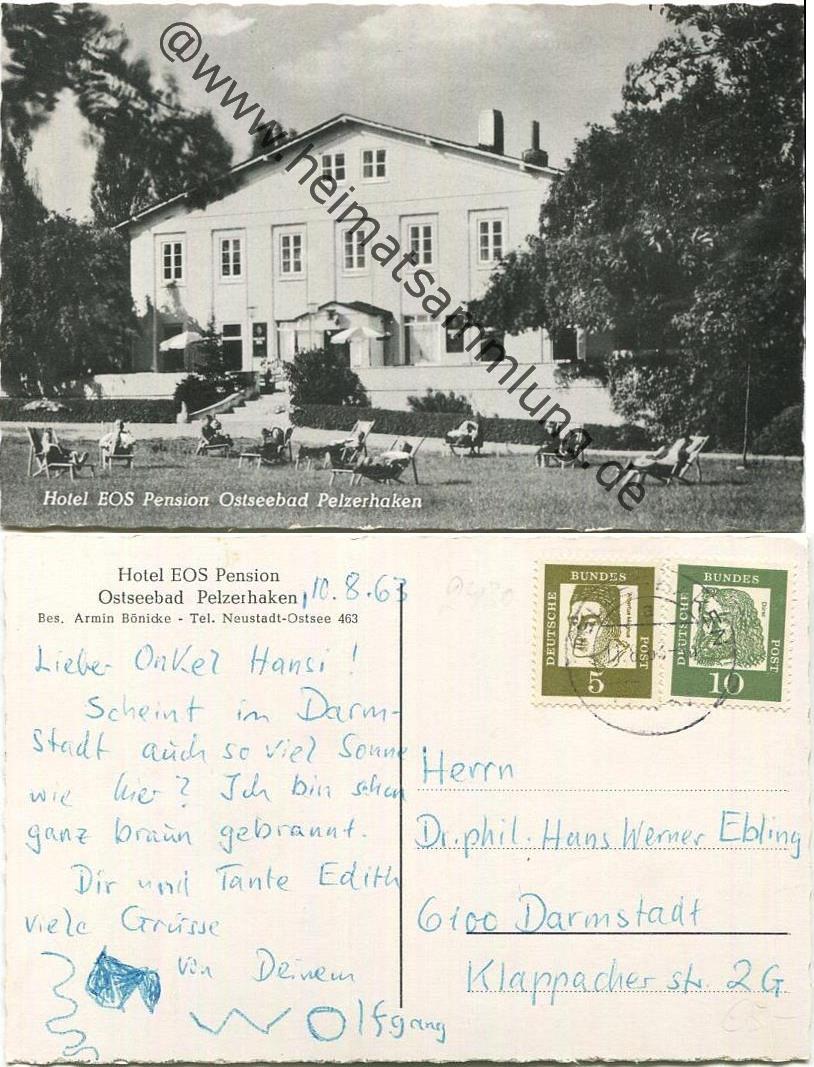 @www.heimatsammlung.de
Hotel EOS Pension Ostseebad Pelzerhaken
Hotel EOS Pension
Ostseebad Pelzerhaken, 10.8.63
Bes. Armin Bönicke - Tel. Neustadt-Ostsee 463
Lieber Onkel Hansi!
Scheint in Darm-
stadt auch so viel Sonne
wie hier? Ich bin schon
ganz braun gebrannt.
Dir und Tante Edith
viele Grüsse
von Deinem
Wolfgang
DEUTSCHE BUNDES POST
5
DEUTSCHE BUNDES POST
Dürer
10
Herrn
Dr. phil. Hans Werner Ebling
6100 Darmstadt
Klappacher str. 2G